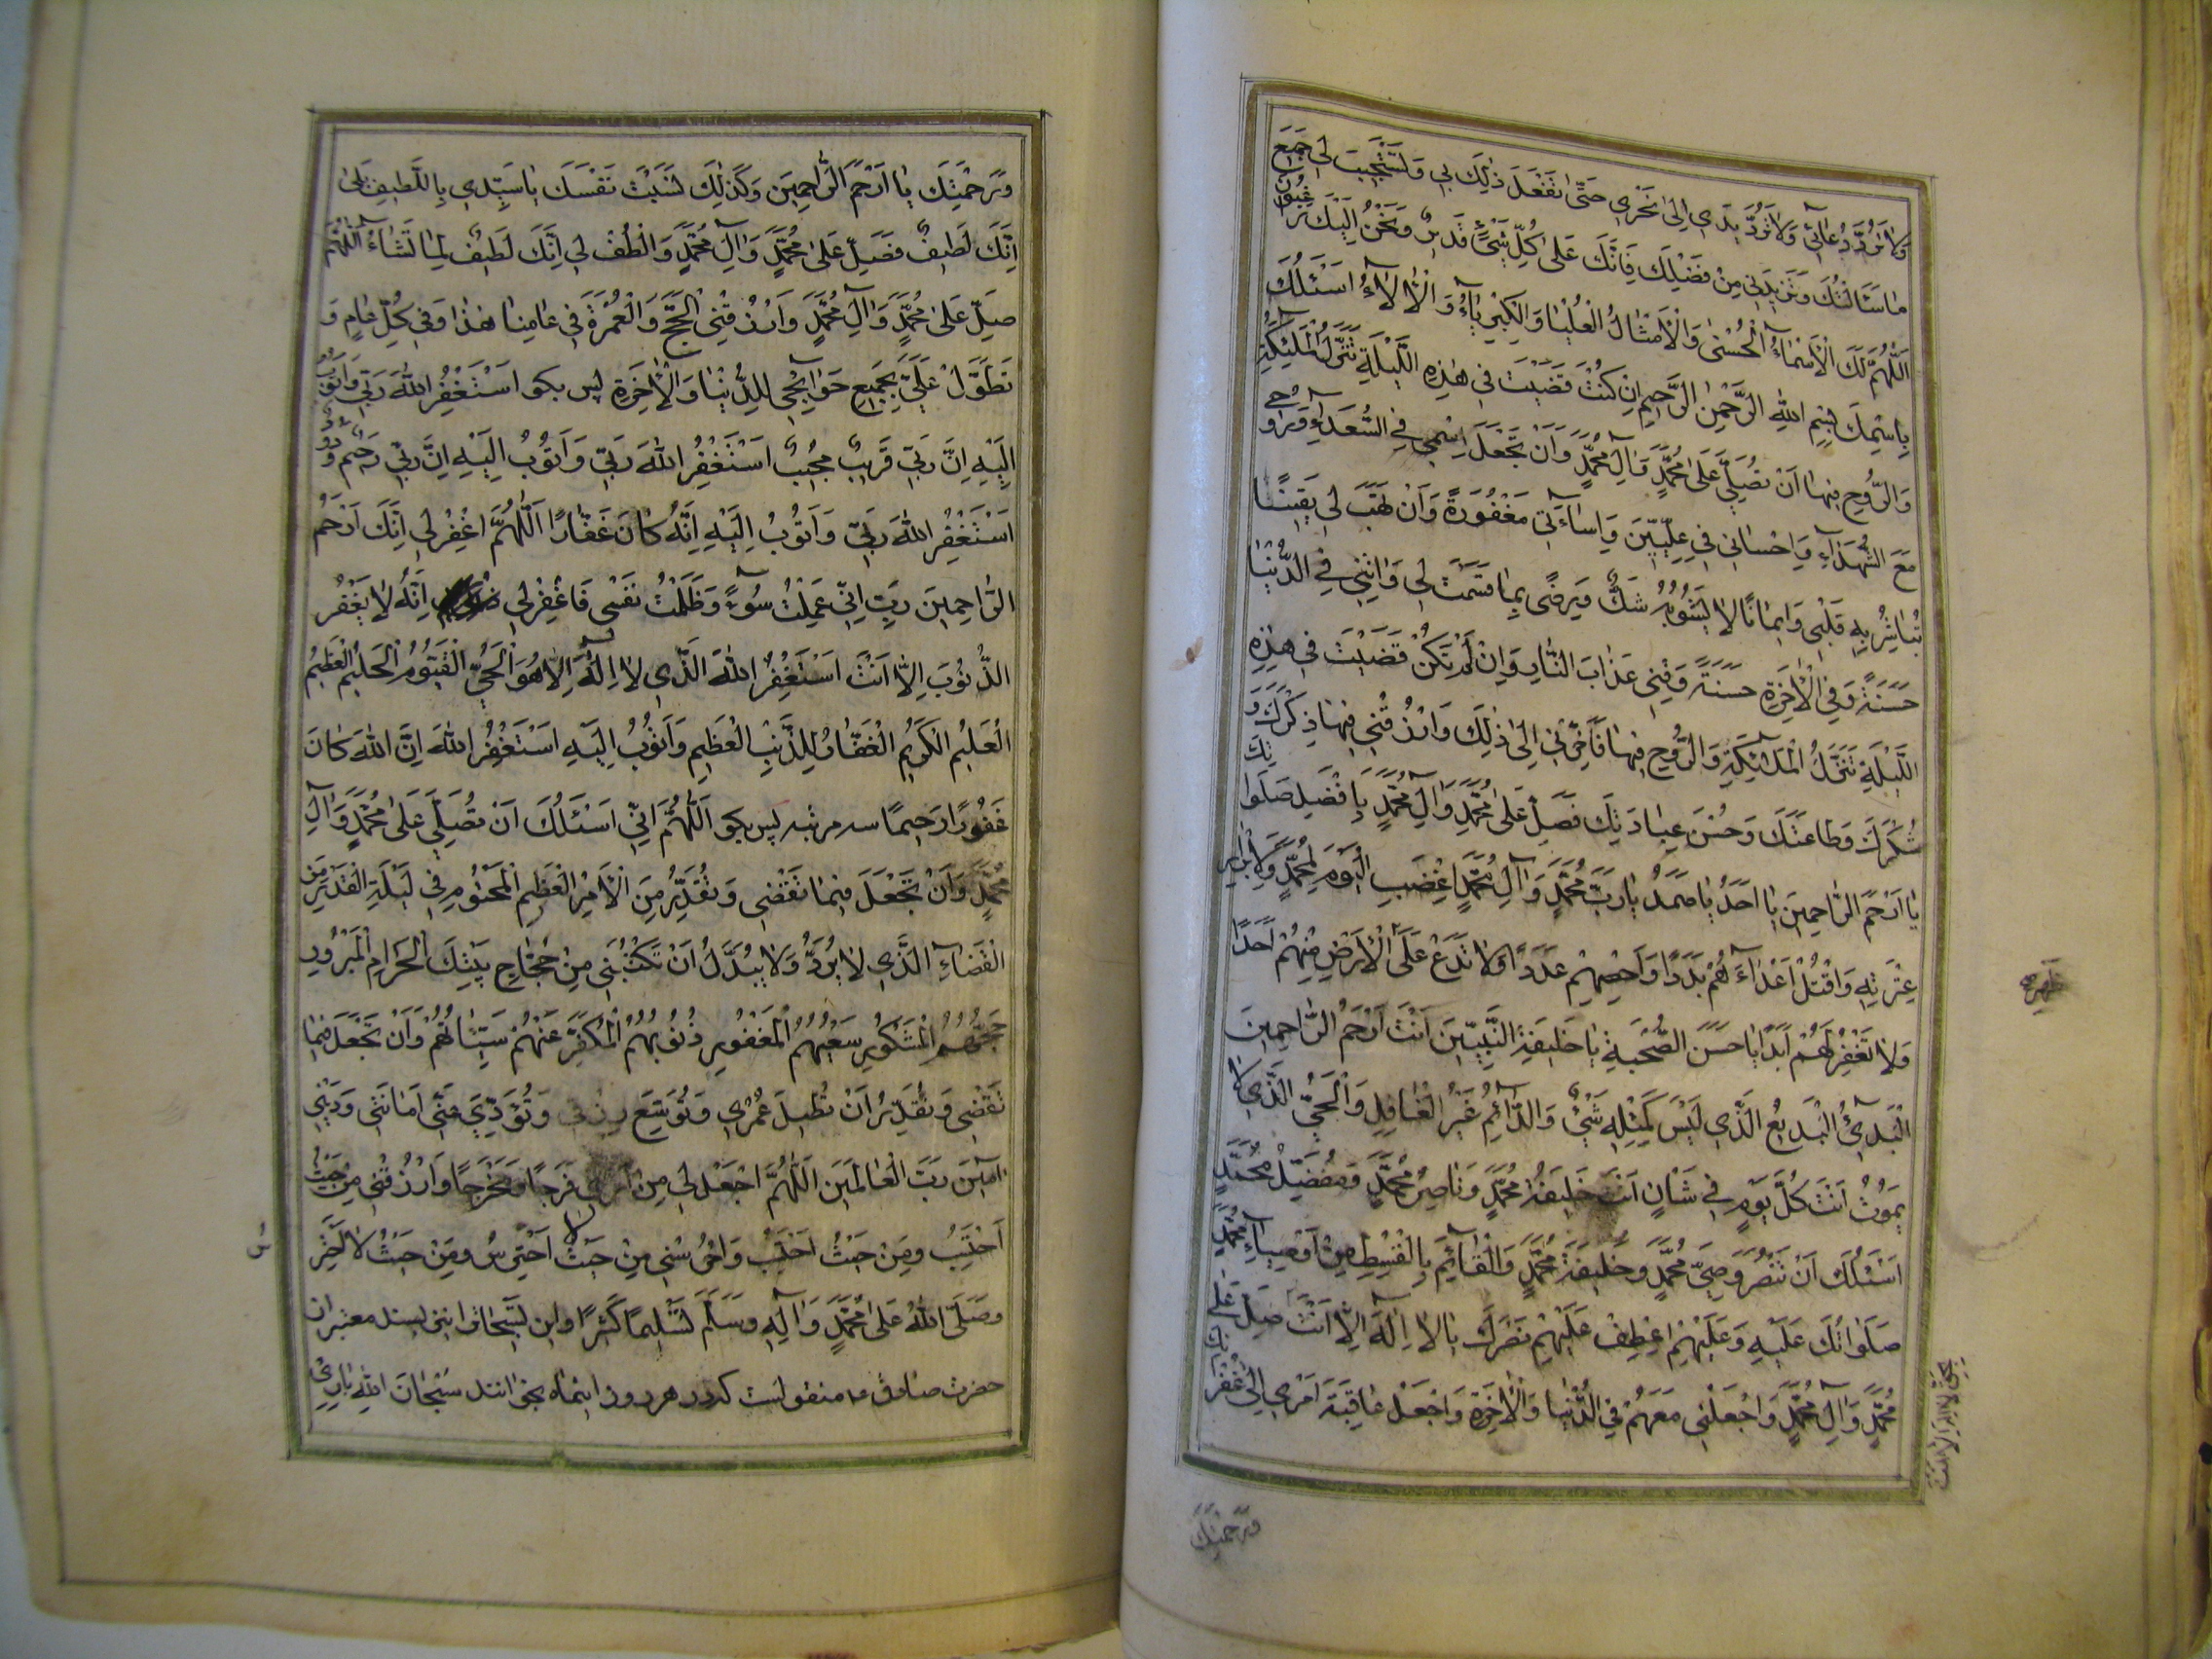 وَلَا تَرُدَّ دُعَائِي وَلَا تَرُدَّ يَدِي إِلَى نَحْرِي حَتَّى تَفْعَلَ ذَلِكَ بِي وَتَسْتَجِيبَ لِي جَمِيعَ
مَا سَئَلْتُكَ وَتَزِيدَنِي مِنْ فَضْلِكَ فَإِنَّكَ عَلَى كُلِّ شَيْءٍ قَدِيرٌ وَنَحْنُ إِلَيْكَ رَاغِبُونَ
اَللَّهُمَّ لَكَ الْأَسْمَاءُ الْحُسْنَى وَالْأَمْثَالُ الْعُلْيَا وَالْكِبْرِيَاءُ وَالْآلَاءُ اَسْئَلُكَ
بِاسْمِكَ بِسْمِ اللهِ الرَّحْمٰنِ الرَّحِيمِ اِنْ كُنْتَ قَضَيْتَ فِي هٰذِهِ اللَّيْلَةِ تَنَزُّلَ الْمَلٰئِكَةِ
وَالرُّوحِ فِيهَا اَنْ تُصَلِّيَ عَلَى مُحَمَّدٍ وَآلِ مُحَمَّدٍ وَاَنْ تَجْعَلَ اسْمِي فِي السُّعَدَاءِ وَرُوحِي
مَعَ الشُّهَدَاءِ وَاِحْسَانِي فِي عِلِّيِّينَ وَاِسَاءَتِي مَغْفُورَةً وَاَنْ تَهَبَ لِي يَقِينًا
تُبَاشِرُ بِهِ قَلْبِي وَاِيمَانًا لَا يَشُوبُهُ شَكٌّ وَتُرَضِّيَنِي بِمَا قَسَمْتَ لِي وَآتِنِي فِي الدُّنْيَا
حَسَنَةً وَفِي الْآخِرَةِ حَسَنَةً وَقِنِي عَذَابَ النَّارِ وَاِنْ لَمْ تَكُنْ قَضَيْتَ فِي هٰذِهِ
اللَّيْلَةِ تَنَزُّلَ الْمَلٰئِكَةِ وَالرُّوحِ فِيهَا فَاَخِّرْنِي اِلَى ذٰلِكَ وَارْزُقْنِي فِيهَا ذِكْرَكَ وَ
شُكْرَكَ وَطَاعَتَكَ وَحُسْنَ عِبَادَتِكَ فَصَلِّ عَلَى مُحَمَّدٍ وَآلِ مُحَمَّدٍ بِاَفْضَلِ صَلَوَاتِكَ
يَا اَرْحَمَ الرَّاحِمِينَ يَا اَحَدُ يَا صَمَدُ يَا رَبَّ مُحَمَّدٍ وَآلِ مُحَمَّدٍ اغْضَبِ الْيَوْمَ لِمُحَمَّدٍ وَلِاَبْرَارِ
عِتْرَتِهِ وَاقْتُلْ اَعْدَاءَهُمْ بَدَدًا وَاَحْصِهِمْ عَدَدًا وَلَا تَدَعْ عَلَى الْاَرْضِ مِنْهُمْ اَحَدًا
وَلَا تَغْفِرْ لَهُمْ اَبَدًا يَا حَسَنَ الصُّحْبَةِ يَا خَلِيفَةَ النَّبِيِّينَ اَنْتَ اَرْحَمُ الرَّاحِمِينَ
الْبَدِيءُ الْبَدِيعُ الَّذِي لَيْسَ كَمِثْلِهِ شَيْءٌ وَالدَّائِمُ غَيْرُ الْغَافِلِ وَالْحَيُّ الَّذِي لَا
يَمُوتُ اَنْتَ كُلَّ يَوْمٍ فِي شَاْنٍ اَنْتَ خَلِيفَةُ مُحَمَّدٍ وَنَاصِرُ مُحَمَّدٍ وَمُفَضِّلُ مُحَمَّدٍ
اَسْئَلُكَ اَنْ تَنْصُرَ وَصِيَّ مُحَمَّدٍ وَخَلِيفَةَ مُحَمَّدٍ وَالْقَائِمَ بِالْقِسْطِ مِنْ اَوْصِيَاءِ مُحَمَّدٍ
صَلَوَاتُكَ عَلَيْهِ وَعَلَيْهِمْ اعْطِفْ عَلَيْهِمْ نَصْرَكَ يَا لَا اِلٰهَ اِلَّا اَنْتَ صَلِّ عَلَى
مُحَمَّدٍ وَآلِ مُحَمَّدٍ وَاجْعَلْنِي مَعَهُمْ فِي الدُّنْيَا وَالْآخِرَةِ وَاجْعَلْ عَاقِبَةَ اَمْرِي اِلَى غُفْرَانِكَ
وَرَحْمَتِكَ
وَرَحْمَتِكَ يَا اَرْحَمَ الرَّاحِمِينَ وَكَذٰلِكَ نَسَبْتَ نَفْسَكَ يَا سَيِّدِي بِاللَّطِيفِ بَلَى
اِنَّكَ لَطِيفٌ فَصَلِّ عَلَى مُحَمَّدٍ وَآلِ مُحَمَّدٍ وَالْطُفْ لِي اِنَّكَ لَطِيفٌ لِمَا تَشَاءُ اَللَّهُمَّ
صَلِّ عَلَى مُحَمَّدٍ وَآلِ مُحَمَّدٍ وَارْزُقْنِي الْحَجَّ وَالْعُمْرَةَ فِي عَامِنَا هٰذَا وَفِي كُلِّ عَامٍ وَ
تَطَوَّلْ عَلَيَّ بِجَمِيعِ حَوَائِجِي لِلدُّنْيَا وَالْآخِرَةِ پس بكو اَسْتَغْفِرُ اللهَ رَبِّي وَاَتُوبُ
اِلَيْهِ اِنَّ رَبِّي قَرِيبٌ مُجِيبٌ اَسْتَغْفِرُ اللهَ رَبِّي وَاَتُوبُ اِلَيْهِ اِنَّ رَبِّي رَحِيمٌ وَدُودٌ
اَسْتَغْفِرُ اللهَ رَبِّي وَاَتُوبُ اِلَيْهِ اِنَّهُ كَانَ غَفَّارًا اَللَّهُمَّ اغْفِرْ لِي اِنَّكَ اَرْحَمُ
الرَّاحِمِينَ رَبِّ اِنِّي عَمِلْتُ سُوءً وَظَلَمْتُ نَفْسِي فَاغْفِرْ لِي اِنَّهُ لَا يَغْفِرُ
الذُّنُوبَ اِلَّا اَنْتَ اَسْتَغْفِرُ اللهَ الَّذِي لَا اِلٰهَ اِلَّا هُوَ الْحَيُّ الْقَيُّومُ الْحَلِيمُ الْعَظِيمُ
الْعَلِيمُ الْكَرِيمُ الْغَفَّارُ لِلذَّنْبِ الْعَظِيمِ وَاَتُوبُ اِلَيْهِ اَسْتَغْفِرُ اللهَ اِنَّ اللهَ كَانَ
غَفُورًا رَحِيمًا سه مرتبه پس بكو اَللَّهُمَّ اِنِّي اَسْئَلُكَ اَنْ تُصَلِّيَ عَلَى مُحَمَّدٍ وَآلِ
مُحَمَّدٍ وَاَنْ تَجْعَلَ فِيمَا تَقْضِي وَتُقَدِّرُ مِنَ الْاَمْرِ الْعَظِيمِ الْمَحْتُومِ فِي لَيْلَةِ الْقَدْرِ مِنَ
الْقَضَاءِ الَّذِي لَا يُرَدُّ وَلَا يُبَدَّلُ اَنْ تَكْتُبَنِي مِنْ حُجَّاجِ بَيْتِكَ الْحَرَامِ الْمَبْرُورِ
حَجُّهُمُ الْمَشْكُورِ سَعْيُهُمُ الْمَغْفُورِ ذُنُوبُهُمُ الْمُكَفَّرِ عَنْهُمْ سَيِّئَاتُهُمْ وَاَنْ تَجْعَلَ فِيمَا
تَقْضِي وَتُقَدِّرُ اَنْ تُطِيلَ عُمْرِي وَتُوَسِّعَ رِزْقِي وَتُؤَدِّيَ عَنِّي اَمَانَتِي وَدَيْنِي
آمِينَ رَبَّ الْعَالَمِينَ اَللَّهُمَّ اجْعَلْ لِي مِنْ اَمْرِي فَرَجًا وَمَخْرَجًا وَارْزُقْنِي مِنْ حَيْثُ
اَحْتَسِبُ وَمِنْ حَيْثُ لَا اَحْتَسِبُ وَاحْرُسْنِي مِنْ حَيْثُ اَحْتَرِسُ وَمِنْ حَيْثُ لَا اَحْتَرِسُ
وَصَلَّى اللهُ عَلَى مُحَمَّدٍ وَآلِهِ وَسَلَّمَ تَسْلِيمًا كَثِيرًا واين تسبيحات را نيز بسند معتبر از
حضرت صادق ع منقولست كه در هر روز اينماه بخوانند سُبْحَانَ اللهِ بَارِئِ